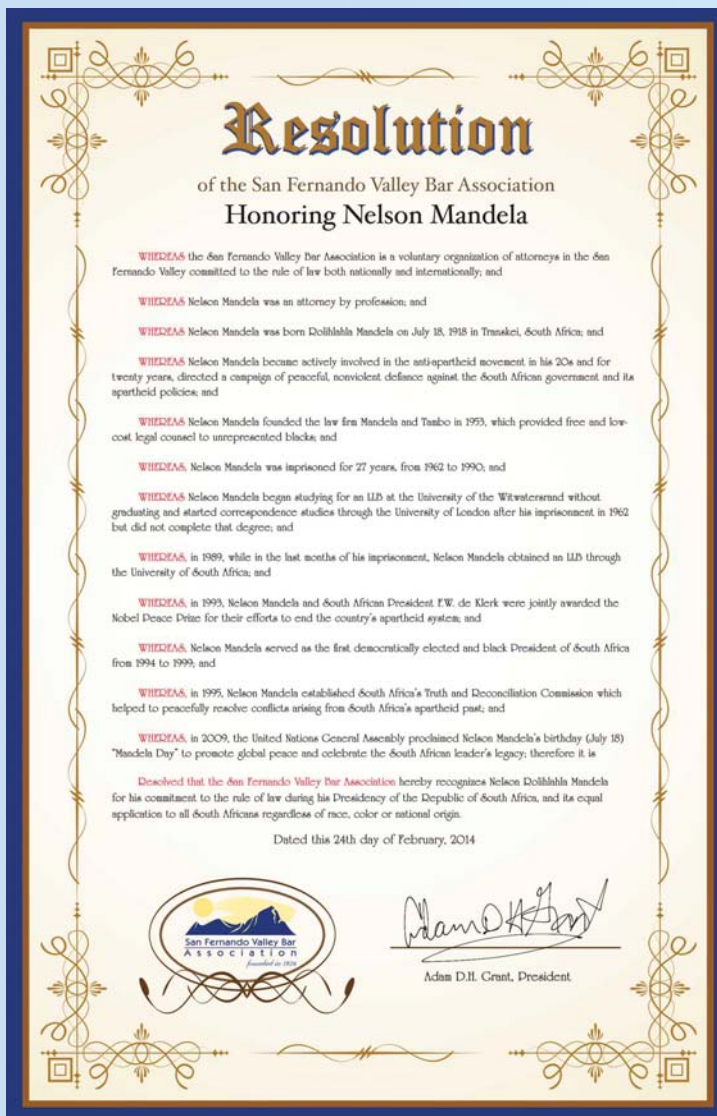 Resolution
of the San Fernando Valley Bar Association
Honoring Nelson Mandela
WHEREAS the San Fernando Valley Bar Association is a voluntary organization of attorneys in the San
Fernando Valley committed to the rule of law both nationally and internationally; and
WHEREAS Nelson Mandela was an attorney by profession; and
WHEREAS Nelson Mandela was born Rolihlahla Mandela on July 18, 1918 in Transkei, South Africa; and
WHEREAS Nelson Mandela became actively involved in the anti-apartheid movement in his 20s and for
twenty years, directed a campaign of peaceful, nonviolent defiance against the South African government and its
apartheid policies; and
WHEREAS Nelson Mandela founded the law firm Mandela and Tambo in 1953, which provided free and low-
cost legal counsel to unrepresented blacks; and
WHEREAS, Nelson Mandela was imprisoned for 27 years, from 1962 to 1990; and
WHEREAS Nelson Mandela began studying for an LLB at the University of the Witwatersrand without
graduating and started correspondence studies through the University of London after his imprisonment in 1962
but did not complete that degree; and
WHEREAS, in 1989, while in the last months of his imprisonment, Nelson Mandela obtained an LLB through
the University of South Africa; and
WHEREAS, in 1993, Nelson Mandela and South African President F.W. de Klerk were jointly awarded the
Nobel Peace Prize for their efforts to end the country's apartheid system; and
WHEREAS, Nelson Mandela served as the first democratically elected and black President of South Africa
from 1994 to 1999; and
WHEREAS, in 1995, Nelson Mandela established South Africa's Truth and Reconciliation Commission which
helped to peacefully resolve conflicts arising from South Africa's apartheid past; and
WHEREAS, in 2009, the United Nations General Assembly proclaimed Nelson Mandela's birthday (July 18)
"Mandela Day" to promote global peace and celebrate the South African leader's legacy; therefore it is
Resolved that the San Fernando Valley Bar Association hereby recognizes Nelson Rolihlahla Mandela
for his commitment to the rule of law during his Presidency of the Republic of South Africa, and its equal
application to all South Africans regardless of race, color or national origin.
Dated this 24th day of February, 2014
San Fernando Valley Bar
Association
founded in 1926
Adam D H Grant
Adam D.H. Grant, President